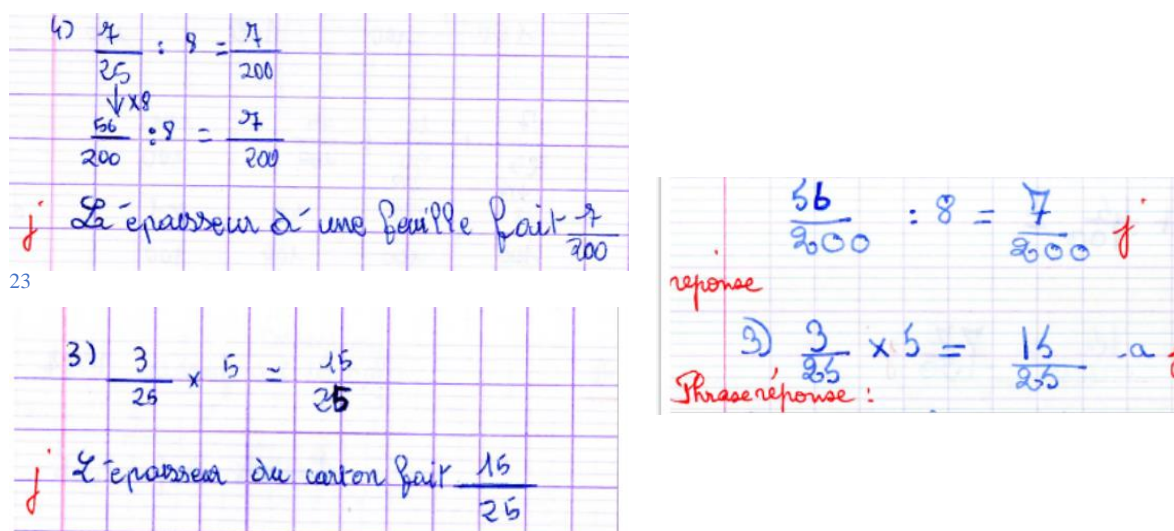 4) 7/25 : 8 = 7/200
↓ ×8
56/200 : 8 = 7/200
j L'épaisseur d'une feuille fait 7/200
23
3) 3/25 × 5 = 15/25
j L'épaisseur du carton fait 15/25
56/200 : 8 = 7/200 j
reponse
3) 3/25 × 5 = 15/25 a
Phrase réponse :